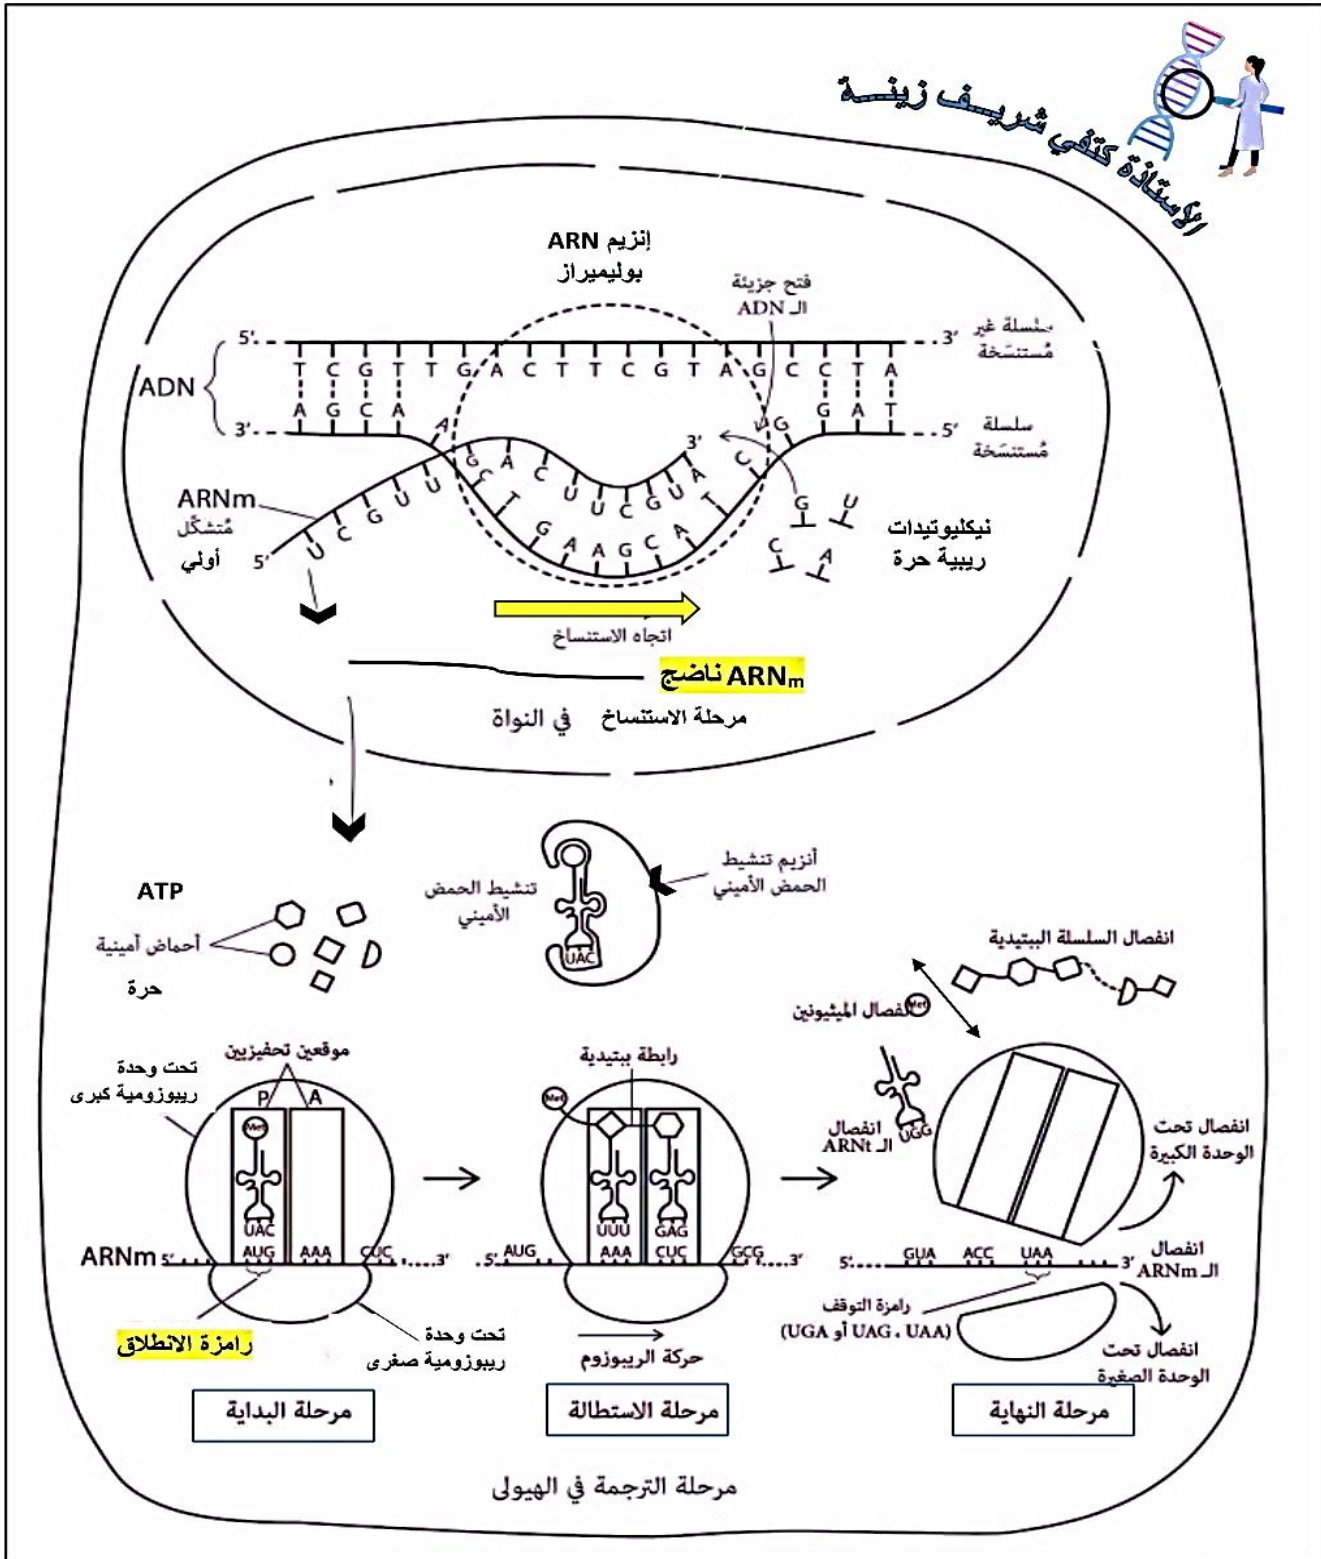 الأستاذة كتفي شريف زينة
إنزيم ARN
بوليميراز
فتح جزيئة
الـ ADN
5'
3'
سلسلة غير
مُستنسَخة
T C G T T G A C T T C G T A G C C T A
ADN
A G C A A C T G A A G C A T C G G A T
3'
5'
سلسلة
مُستنسَخة
3'
U C G U U G A C U U C G U A
ARNm
مُتشكِّل
أولي
5'
G U
C A
نيكليوتيدات
ريبية حرة
اتجاه الاستنساخ
ARNm ناضج
مرحلة الاستنساخ في النواة
ATP
أحماض أمينية
حرة
تنشيط الحمض
الأميني
UAC
أنزيم تنشيط
الحمض الأميني
انفصال السلسلة الببتيدية
انفصال الميثيونين
Met
تحت وحدة
ريبوزومية كبرى
موقعين تحفيزيين
P A
Met
UAC
ARNm 5' AUG AAA CUC 3'
رامزة الانطلاق
تحت وحدة
ريبوزومية صغرى
مرحلة البداية
رابطة ببتيدية
Met
UUU GAG
5' AUG AAA CUC GCG 3'
حركة الريبوزوم
مرحلة الاستطالة
انفصال
الـ ARNt
UGG
انفصال تحت
الوحدة الكبيرة
5' GUA ACC UAA 3'
انفصال
الـ ARNm
رامزة التوقف
(UGA أو UAG ، UAA)
انفصال تحت
الوحدة الصغيرة
مرحلة النهاية
مرحلة الترجمة في الهيولى